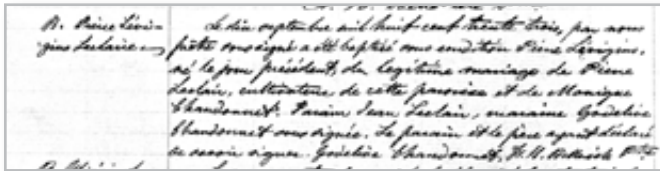 B. Pierre Lévi-
gins Leclaire
Le dix septembre mil huit cent trente trois, par nous
prêtre soussigné a été baptisé sous condition Pierre Lévigins,
né le jour précédent, du légitime mariage de Pierre
Leclair, cultivateur de cette paroisse et de Monique
Chandonnet. Parain Jean Leclair, maraine Godelive
Chandonnet soussignée. Le parain et le père ayant déclaré
ne savoir signer. Godelive Chandonnet,